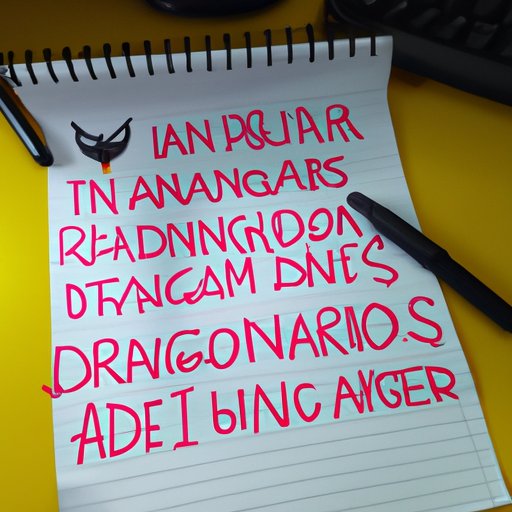 IAN PSCIAR
TN ANANGARS
READNNCHDOA
DTANCAM DNES
DRAGGONARIOS
ADE I bINC AYGER